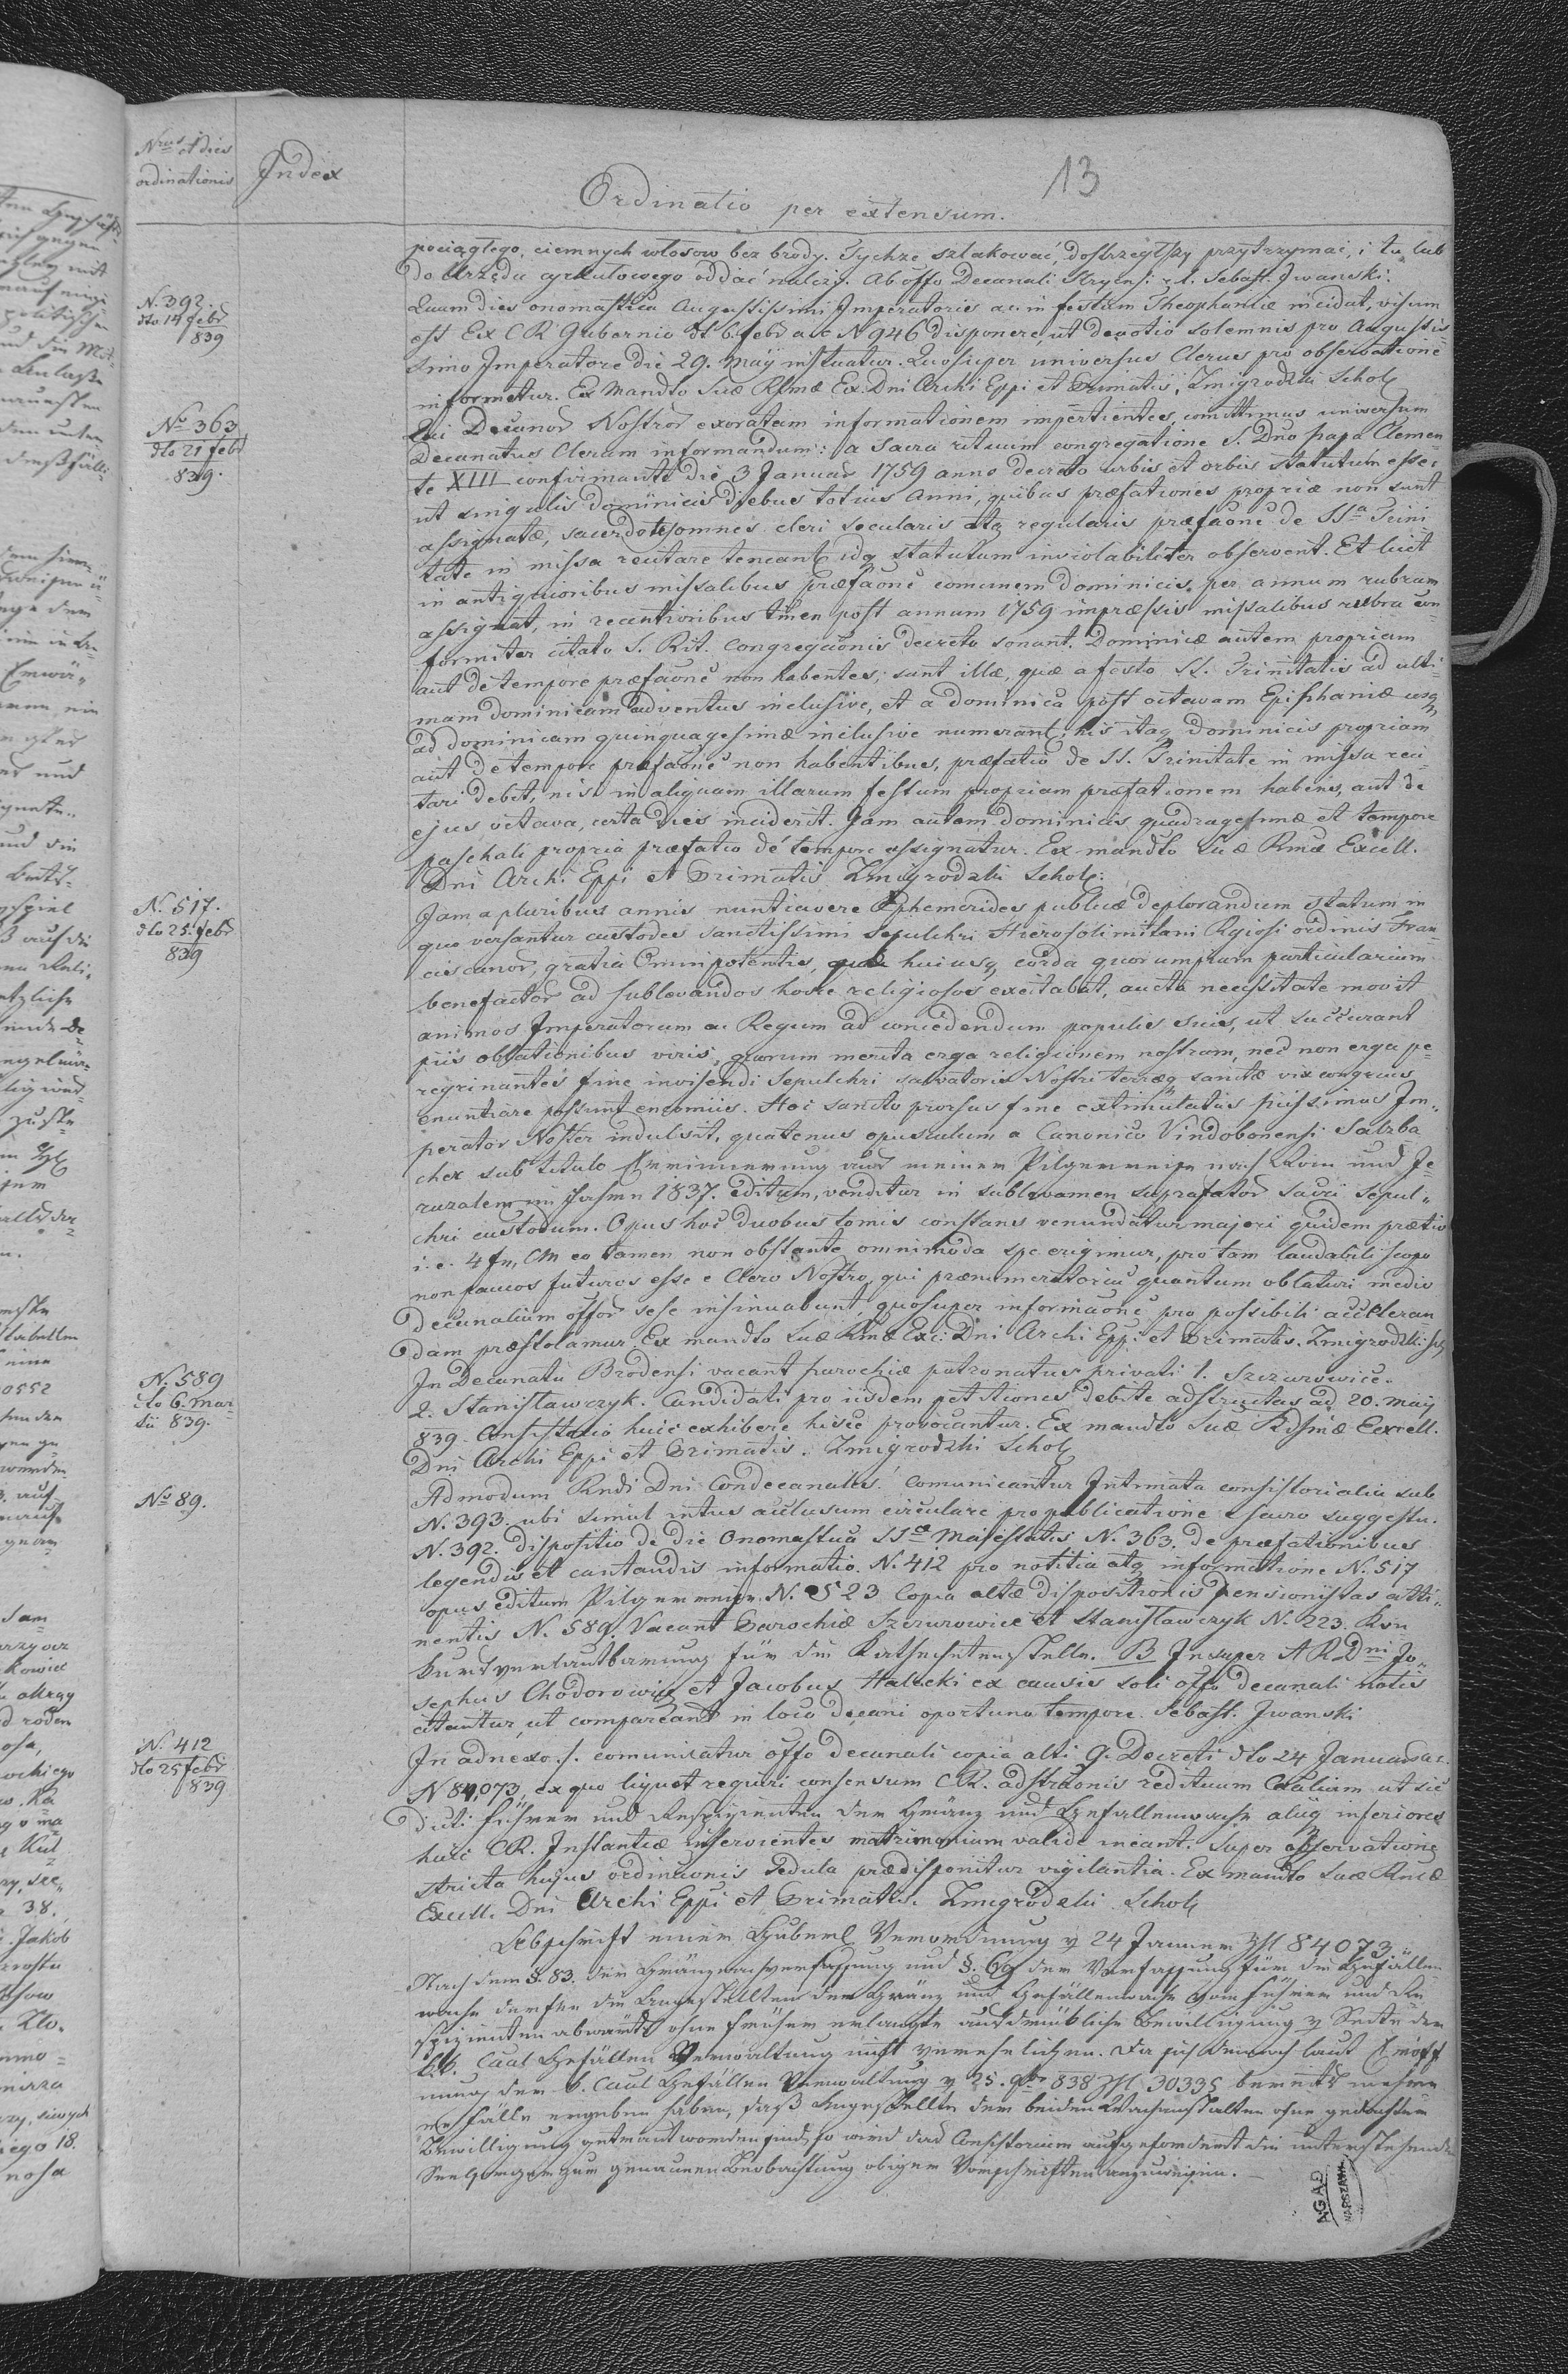 13
Nrus et dies
ordinationis
Index
Ordinatio per extensum.
pociągłego, ciemnych włosow bez brody. Tychże szlakować, dostrzegłszy przytrzymać, i tu lub
do Urzędu cyrkułowego oddać należy. Ab offo Decanali Stryensi r.l. Sebast. Iwanski.
N. 392.
dto 14 febr
839
Quum dies onomastica Augustissimi Imperatoris a.c. in festum Theophaniæ incidat, visum
est Ex CR Gubernio dt 6. febr a.c N 946 disponere, ut devotio solemnis pro Augustis
simo Imperatore die 29. Maÿ instituatur. Quosuper universus Clerus pro observatione
informetur. Ex Mandto Suæ Rssmæ Ex. Dni Archi Eppi et Primatis, Zmigrodzki Schol
No 363
dto 21 febr
839.
Qui Decanor Nostror exoratam informationem impertientes, comittimus universum
Decanatus Clerum informandum: a Sacra rituum congregatione S. Dno papa Clemen-
te XIII confirmante die 3 Januar 1759 anno decreto urbis et orbis statutum esse:
ut singulis dominicis diebus totius Anni, quibus præfationes propriæ non sunt
assignatæ, sacerdotes omnes cleri secularis atq regularis præfaone de SSa Trini
tate in missa recitare teneant idq statutum inviolabiliter observent. Et licet
in antiquioribus missalibus Præfaone comunem dominicis per annum rubram
assignat, in recentioribus tmen post annum 1759 impræssis missalibus rubra con-
formiter citato S. Rit. Congregaonis decreto sonant. Dominicæ autem propriam
aut de tempore præfaone non habentes, sunt illæ, quæ a festo SS. Trinitatis ad ulti-
mam dominicam adventus inclusive, et a dominica post octavam Epiphaniæ usq
ad dominicam quinquagesimæ inclusive numerant; his itaq Dominicis propriam
aut de tempore præfaone non habentibus, præfatio de SS. Trinitate in missa reci-
tari debet, nisi in aliquam illarum festum propriam præfationem habens, aut de
ejus octava, certa dies inciderit. Jam autem dominicis quadragesimæ et tempore
paschali propria præfatio de tempore assignatur. Ex mandto Suæ Rmæ Excell.
Dni Archi Eppi et Primatis Zmigrodzki Schol:
N. 517.
dto 25. febr
839
Jam a pluribus annis nuntiavere Ephemerides publicæ deplorandum statum in
quo versantur custodes sanctissimi Sepulchri Hierosolimitani Rgiosi ordinis Fran-
ciscanor, gratia Omnipotentis, quæ huiusq corda quorumpiam particularium
benefactor ad sublevandos hosce religiosos excitabat, aucta necessitate movit
animos Imperatorum ac Regum ad concedendum populis suis, ut succurant
piis oblationibus viris, quorum merita erga religionem nostram, nec non erga pe-
regrinantes fine invisendi Sepulchri salvatoris Nostri terræq sanctæ vix congruis
enuntiare possunt encomiis. Hoc sancto prorsus fine extimulatus piissimus Im-
perator Noster indulsit, quatenus opusculum a Canonico Vindobonensi Salzba
cher sub titulo Erinnerung aus meiner Pilgerreise nach Rom und Je-
ruzalem im Jahre 1837. editum, venditur in sublevamen suprafator sacri Sepul-
chri custodum. Opus hoc duobus tomis constans venundatur majori quidem prætio
i.e. 4 fn, CM eo tamen non obstante omnimoda spe erigimur, pro tam laudabili scopo
non paucos futuros esse e Clero Nostro, qui prænumeratorium quantum oblaturi medio
Decanalium offor sese insinuabunt, quosuper informaone pro possibili accelleran-
dam præstolamur. Ex mandto Suæ Rmæ Exc: Dni Archi Eppi et Primatis. Zmigrodzki Sch
N. 589
dto 6. mar-
tii 839.
In Decanatu Brodensi vacant parochiæ patronatus privati 1. Szczurowice.
2. Stanislawczyk. Candidati pro iisdem petitiones debite adstructas ad 20. Maÿ
839. Consistorio huic exhibere hisce provocantur. Ex mandto Suæ Rdsmæ Excell.
Dni Archi Eppi et Primatis. Zmigrodzki Schol
No 89.
Admodum Rndi Dni Condecanales! Comunicantur Intimata consistorialia sub
N. 393. ubi simul intus acclusum circulare pro publicatione e sacro suggestu.
N. 392. dispositio de die Onomastica SSæ Majestatis N. 363. de præfationibus
legendis et cantandis informatio. N. 412 pro notitia atq informatione N. 517
opus editum Pilgerreise. N. 523 Copia altæ dispositionis pensionistas atti-
nentis N. 589. Vacant Parochiæ Szczurowice et Stanislawczyk N. 223. Kon
kursverlautbarung für die Katechetenstelle. B Insuper A R Dni Jo-
sephus Chodorowicz et Jacobus Halucki ex causis soli offo decanali notis
citantur, ut compareant in loco decani oportuno tempore. Sebast. Iwanski
N. 412
dto 25 febr
839
In adnexo ./. comunicatur offo decanali copia alti G. Decreti dto 24 Januar a.c.
N 84,073, ex quo liquet requiri consensum CR. adstraonis redituum Calium ut sic
dicti Führer und Respizienten der Gränz und Gefällenwache aliiq inferiores
huic CR. Instantiæ inservientes matrimonium valide ineant. Super observatione
stricta hujus ordinaonis sedula prædisponitur vigilantia. Ex mandto Suæ Rmæ
Excell. Dni Archi Eppi et Primatis. Zmigrodzki Schol
Abschrift einer Hubernl Verordnung v 24 Jänner Zhl 84073.
Nach dem §. 83. der Gränzwachverfassung und §. 69 der Verfassung für die Gefällen-
wache dürfen die Angestellten der Gränz und Gefällenwache vom Führer und Re
spizienten abwärts ohne früher erlangte ausdrükliche Bewilligung v Seite der
k.k. Caal Gefällen Verwaltung nicht verehelichen. Da sich demnach laut Eröff
nung der k. Caal Gefällen Verwaltung v 25. 9br 838 Zhl 30335 bereits mehre
re Fälle ergeben haben, daß Angestellte der beiden Wachanstalten ohne gedachter
Bewilligung getraut worden sind, so wird das Consistorium aufgefordert die unterstehende
Seelsorger zur genauen Beobachtung obiger Vorschriften anzuweisen.
AGAD
WARSZAWA